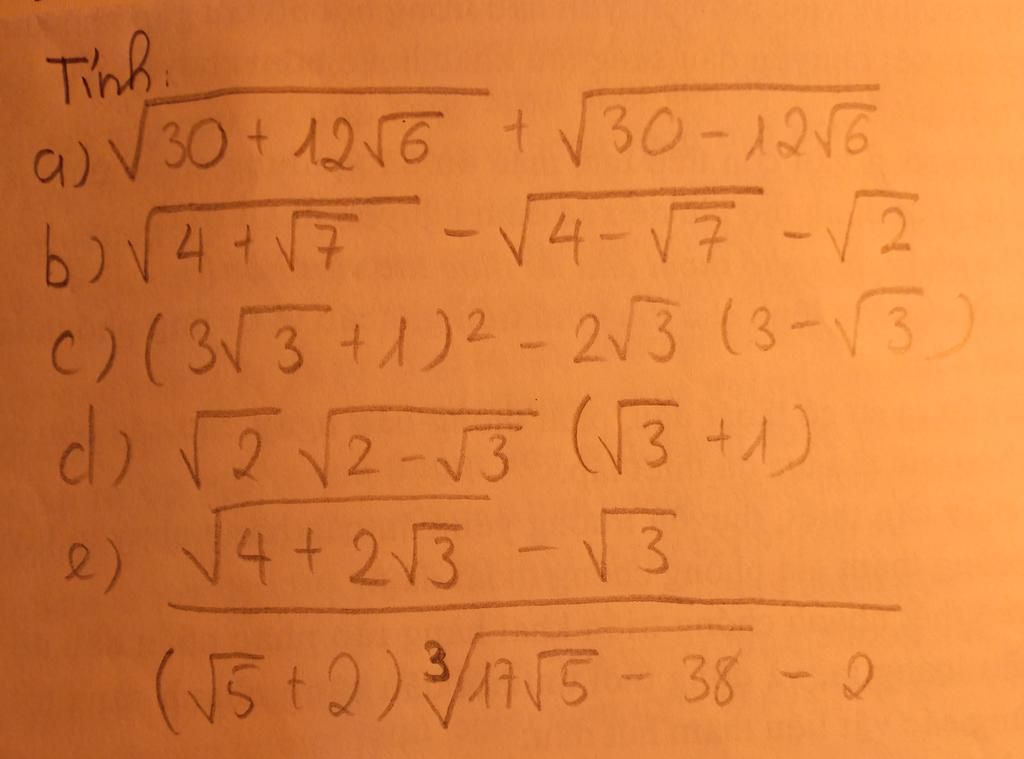 Tính:
a) √(30 + 12√6) + √(30 - 12√6)
b) √(4 + √7) - √(4 - √7) - √2
c) (3√3 + 1)² - 2√3 (3 - √3)
d) √2 √(2 - √3) (√3 + 1)
e) √(4 + 2√3) - √3
(√5 + 2) ³√(17√5 - 38) - 2